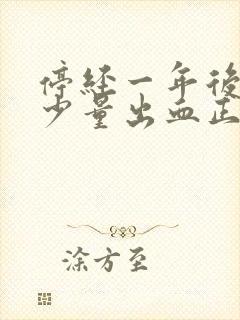 停经一年後
少量出血正
涂方至